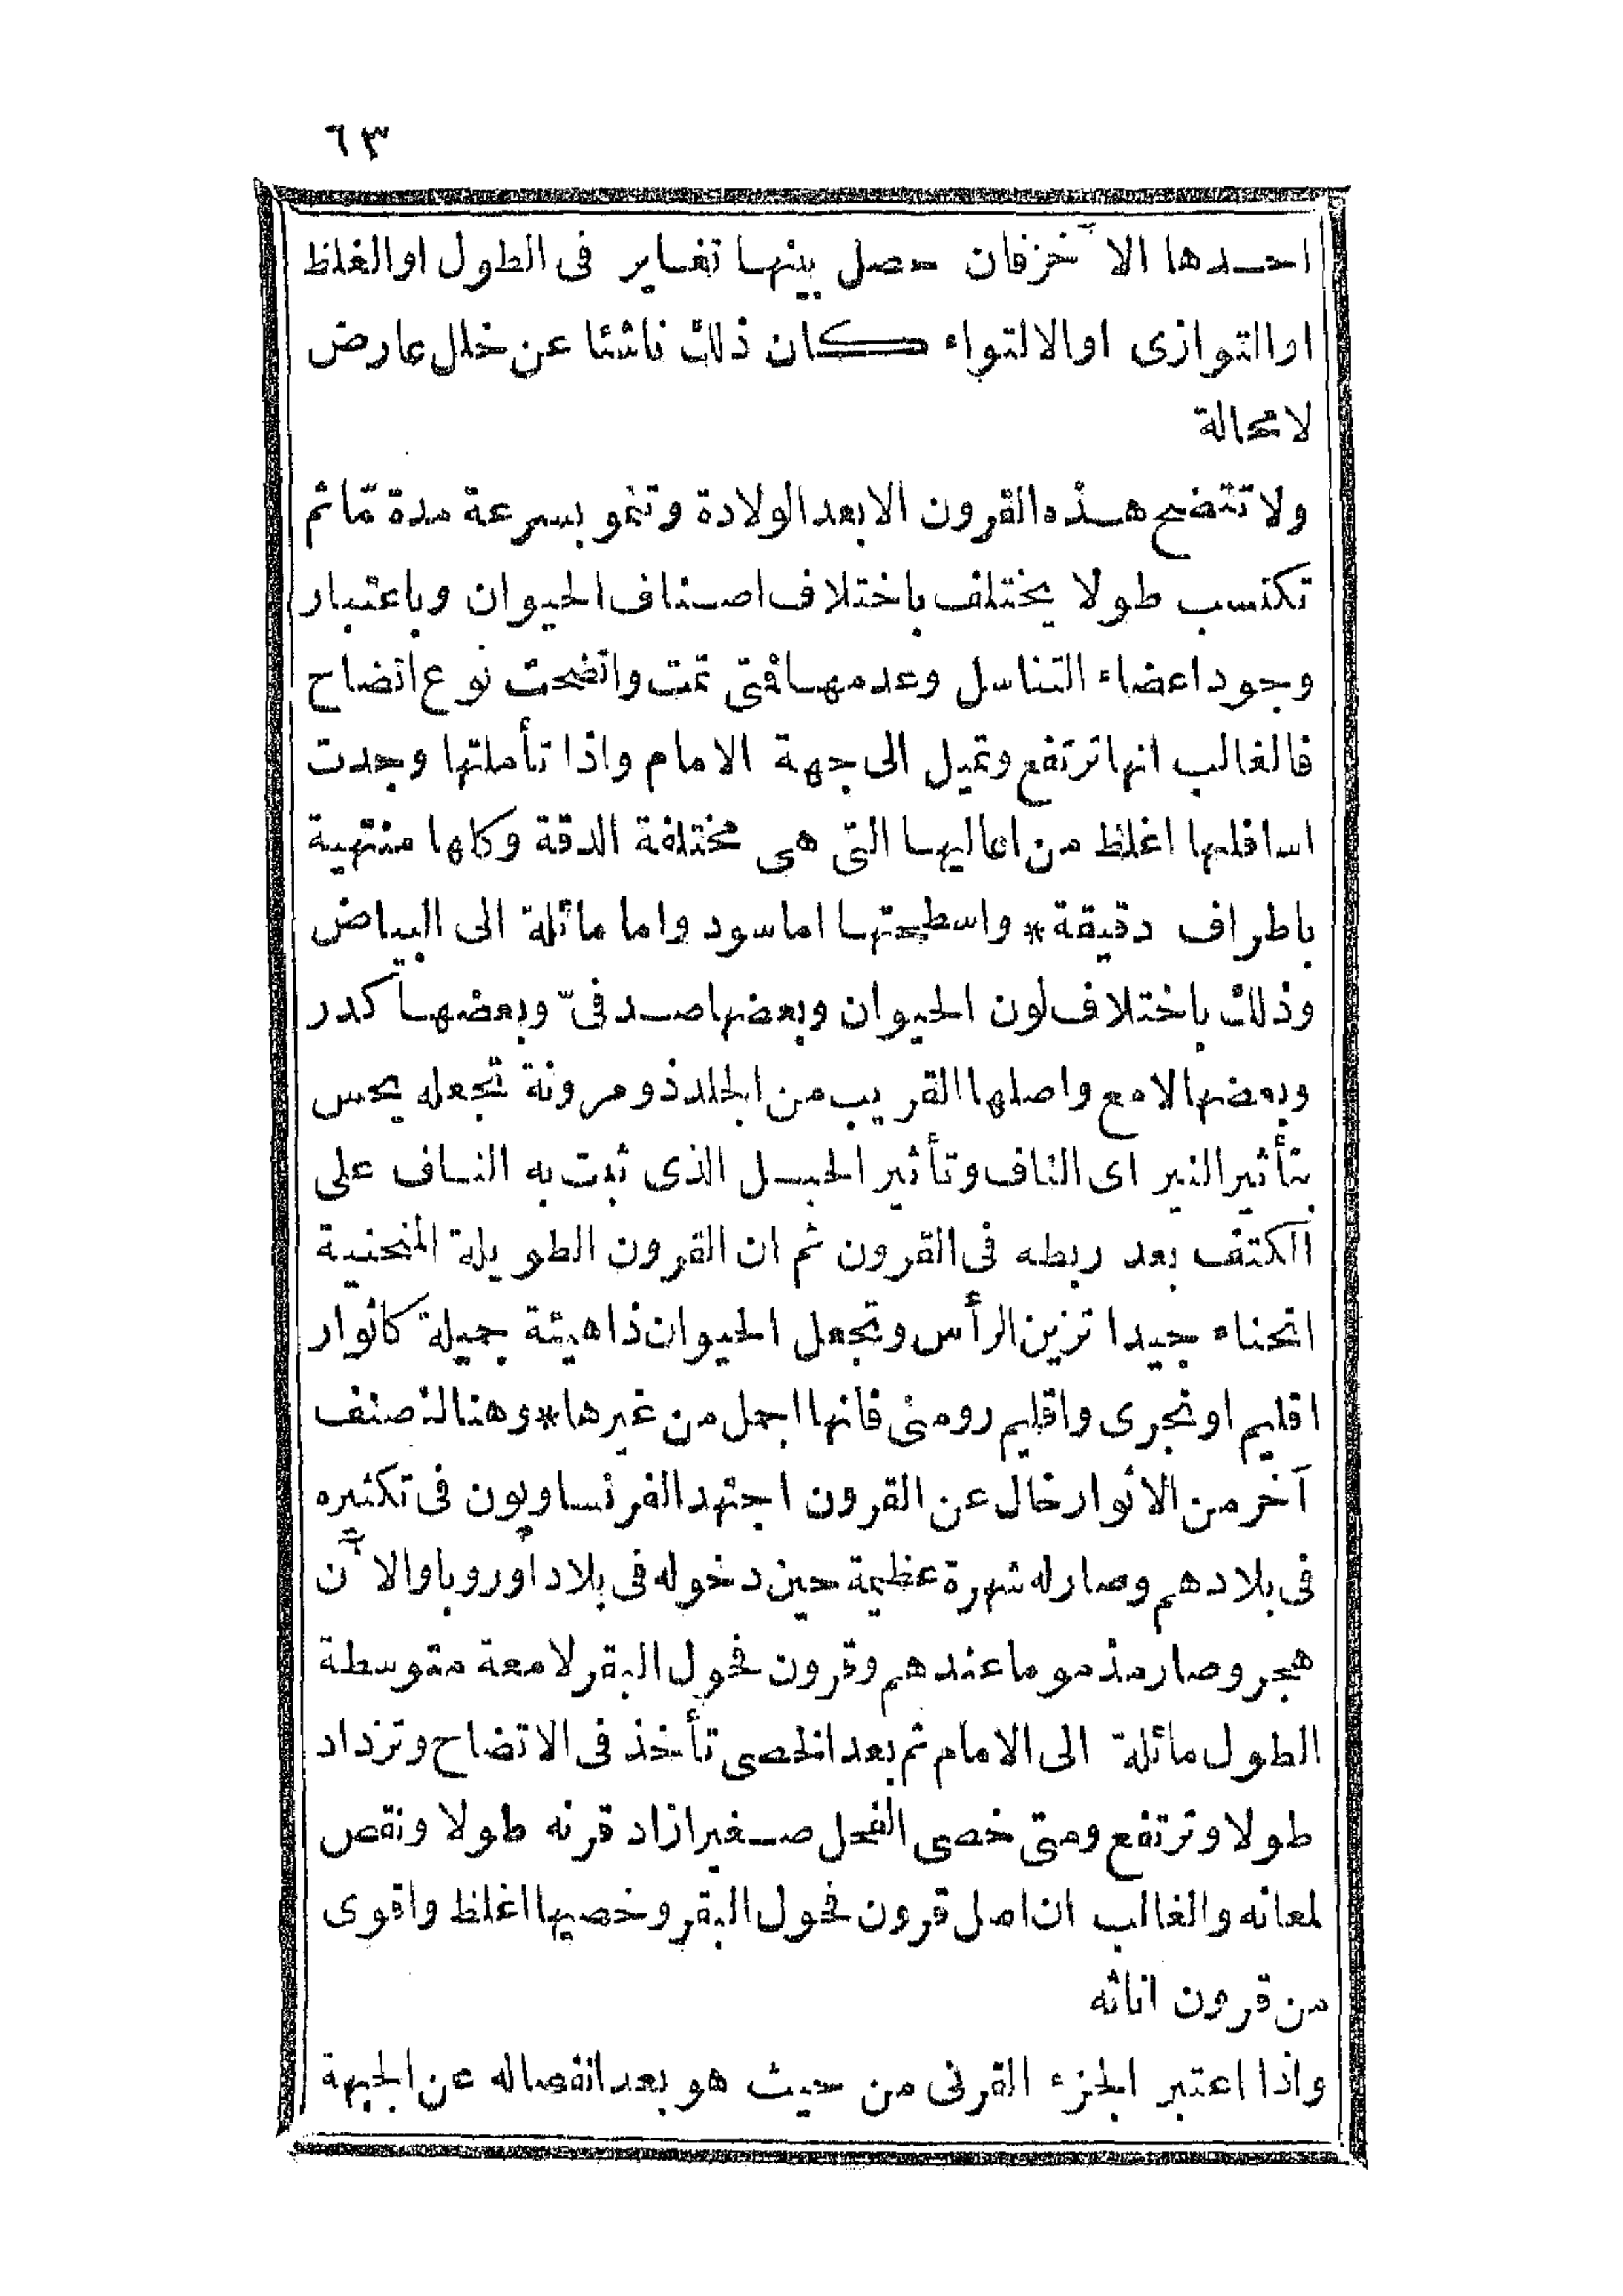 ٦٣
احدها الآخر فان حصل بينها تغاير فى الطول او الغلظ
او التوازى او الالتواء كان ذلك ناشئا عن خلل عارض
لا محالة
ولا تتضح هذه القرون الا بعد الولادة وتنمو بسرعة مدة مّا ثم
تكتسب طولا يختلف باختلاف اصناف الحيوان وباعتبار
وجود اعضاء التناسل وعدمها فتى تمت واتضحت نوع اتضاح
فالغالب انها ترتفع وتميل الى جهة الامام واذا تأملتها وجدت
اسافلها اغلظ من اعاليها التى هى مختلفة الدقة وكلها منتهية
باطراف دقيقة * واسطحتها اما سود واما مائلة الى البياض
وذلك باختلاف لون الحيوان وبعضها صدفىّ وبعضها كدر
وبعضها لامع واصلها القريب من الجلد ذو مرونة تجعله يحس
بتأثير النير اى الناف وتأثير الحبل الذى ثبت به الناف على
الكتف بعد ربطه فى القرون ثم ان القرون الطويلة المنحنية
انحناء جيدا تزين الرأس وتجعل الحيوان ذا هيئة جميلة كاثوار
اقليم اونجرى واقليم رومنى فانها اجمل من غيرها * وهنالك صنف
آخر من الاثوار خال عن القرون اجتهد الفرنساويون فى تكثيره
فى بلادهم وصار له شهرة عظيمة حين دخوله فى بلاد اوروبا والآن
هجر وصار مذموما عندهم وقرون فحول البقر لامعة متوسطة
الطول مائلة الى الامام ثم بعد الخصى تأخذ فى الاتضاح وتزداد
طولا وترتفع ومتى خصى الفحل صغيرا زاد قرنه طولا ونقص
لمعانه والغالب ان اصل قرون فحول البقر وخصيها اغلظ واقوى
من قرون اناثه
واذا اعتبر الجزء القرنى من حيث هو بعد انفصاله عن الجبهة